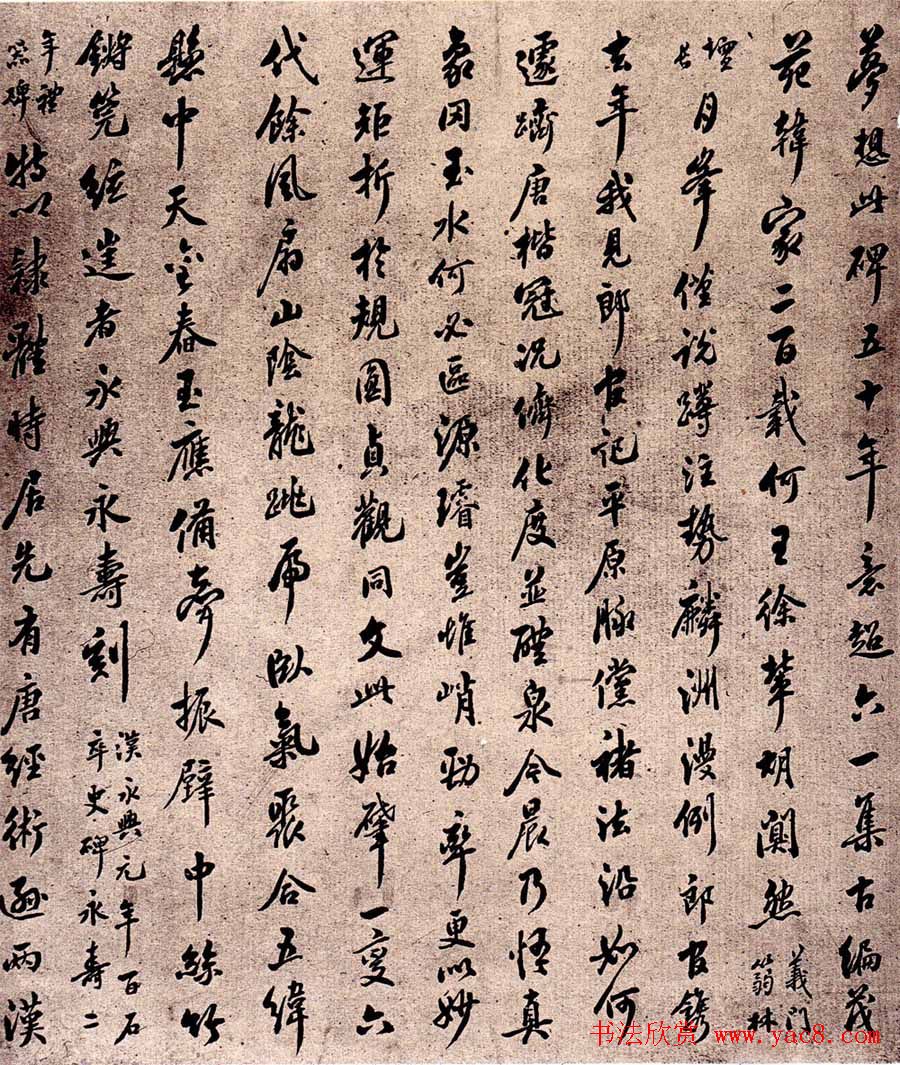 夢想此碑五十年意超六一集古編茂
苑韓家二百載何王徐華胡闃然義門篛林
壇長月峯僅說蹲注勢麟洲漫例郎官鐫
去年我見郎官記平原脈儻褚法沿如何
遽躋唐楷冠況儕化度並醴泉今晨乃悟真
象因玉水何必區源璿豈惟峭勁率更似妙
運矩折於規圓貞觀同文此始肇一變六
代餘風扇山陰龍跳虎臥氣聚合五緯
縣中天金舂玉應備振壁中絲竹
鏘筦絃者永興永壽刻漢永興元年百石卒史碑永壽二
年禮器碑特以隸時居先有唐經術遜兩漢
书法欣赏 www.yac8.com